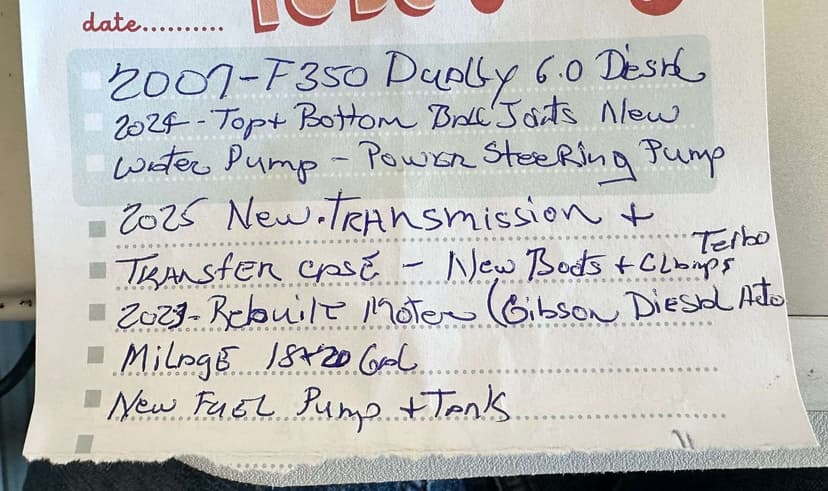 date...........
2007-F350 Dually 6.0 Diesel
2024-Top+ Bottom Ball Joints New
Water Pump - Power Steering Pump
2025 New Transmission +
Transfer case - New Boots + Clamps Terbo
2023-Rebuilt Moter (Gibson Diesel Auto
Milage 18+20 Gal
New Fuel Pump + Tank